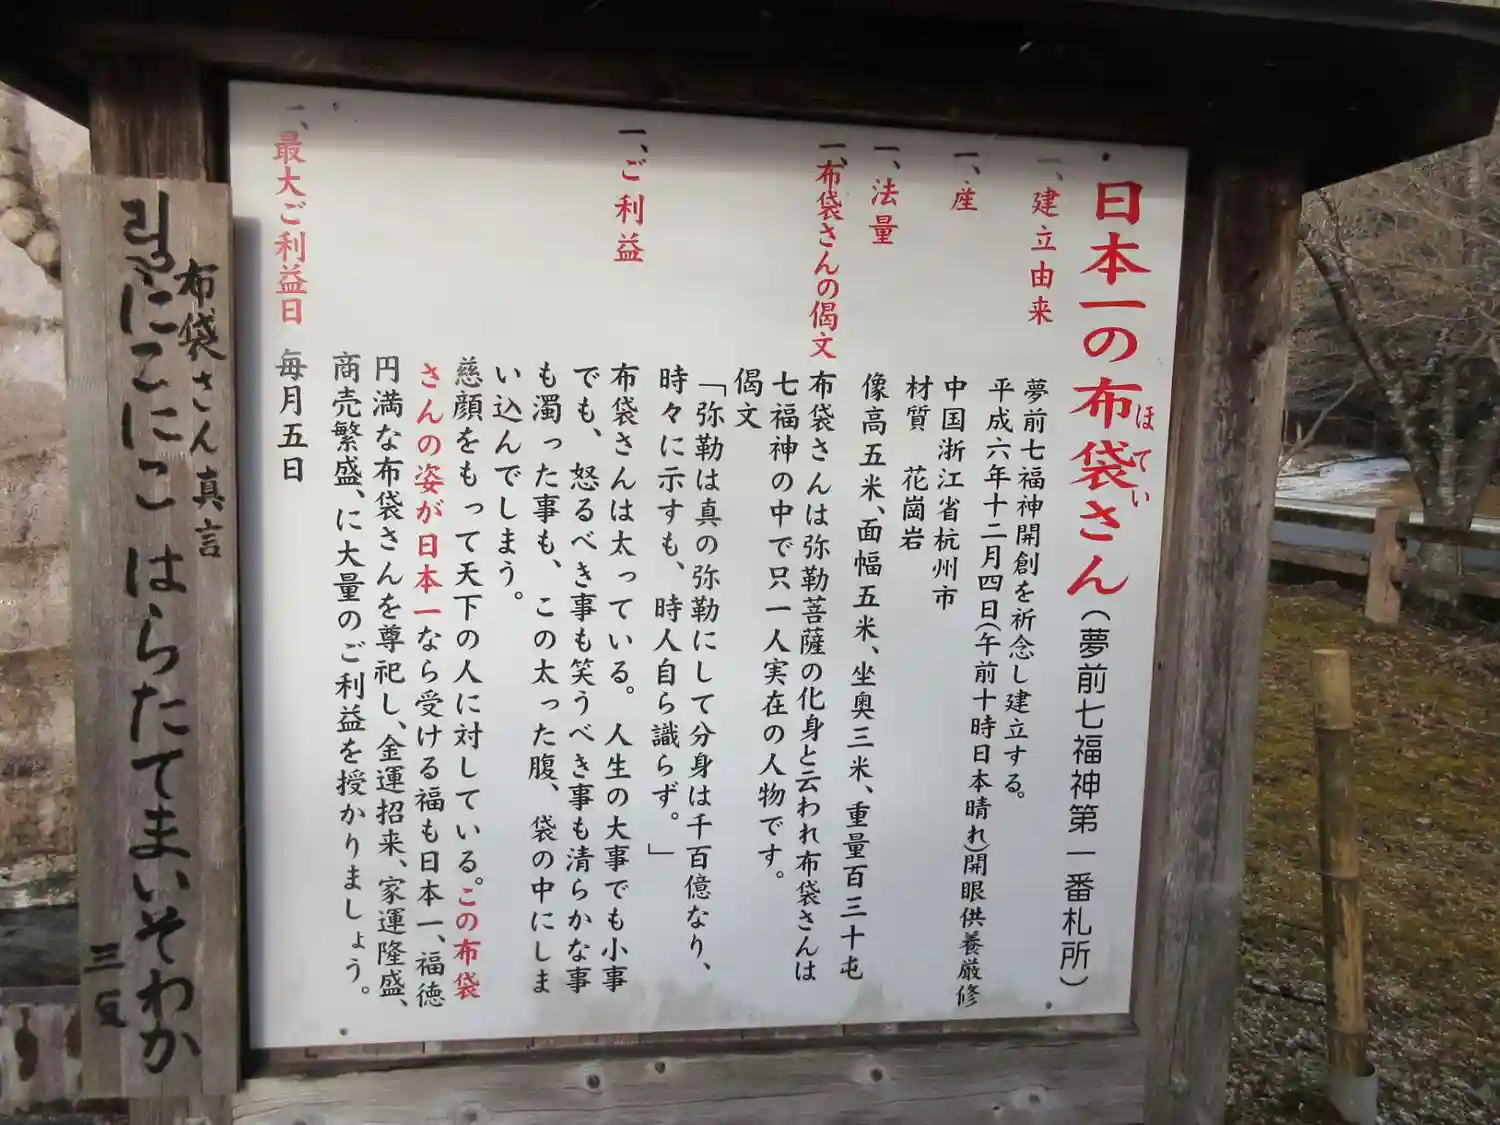 日本一の布袋さん(夢前七福神第一番札所)
ほてい
一、建立由来
夢前七福神開創を祈念し建立する。
平成六年十二月四日(午前十時日本晴れ)開眼供養厳修
一、産
中国浙江省杭州市
材質 花崗岩
一、法量
像高五米、面幅五米、坐奥三米、重量百三十屯
一、布袋さんの偈文
布袋さんは弥勒菩薩の化身と云われ布袋さんは
七福神の中で只一人実在の人物です。
偈文
「弥勒は真の弥勒にして分身は千百億なり、
時々に示すも、時人自ら識らず。」
一、ご利益
布袋さんは太っている。人生の大事でも小事
でも、怒るべき事も笑うべき事も清らかな事
も濁った事も、この太った腹、袋の中にしま
い込んでしまう。
慈顔をもって天下の人に対している。この布袋
さんの姿が日本一なら受ける福も日本一、福徳
円満な布袋さんを尊祀し、金運招来、家運隆盛、
商売繁盛、に大量のご利益を授かりましょう。
一、最大ご利益日 毎月五日
布袋さん真言
にこにこ はらたてまいそわか
三反